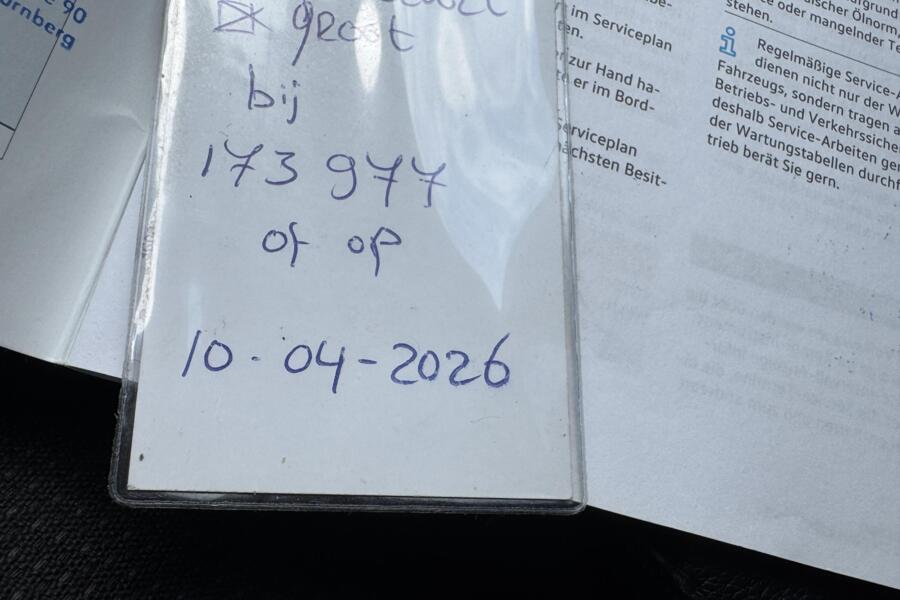 e 90
ürnberg
groot
bij
173 977
of op
10-04-2026
im Serviceplan
zur Hand ha-
er im Bord-
Serviceplan
ächsten Besit-
ischer Ölnorm,
te oder mangelnder Te
stehen.
Regelmäßige Service-A
dienen nicht nur der W
Fahrzeugs, sondern tragen a
Betriebs- und Verkehrssiche
deshalb Service-Arbeiten ge
der Wartungstabellen durchf
trieb berät Sie gern.